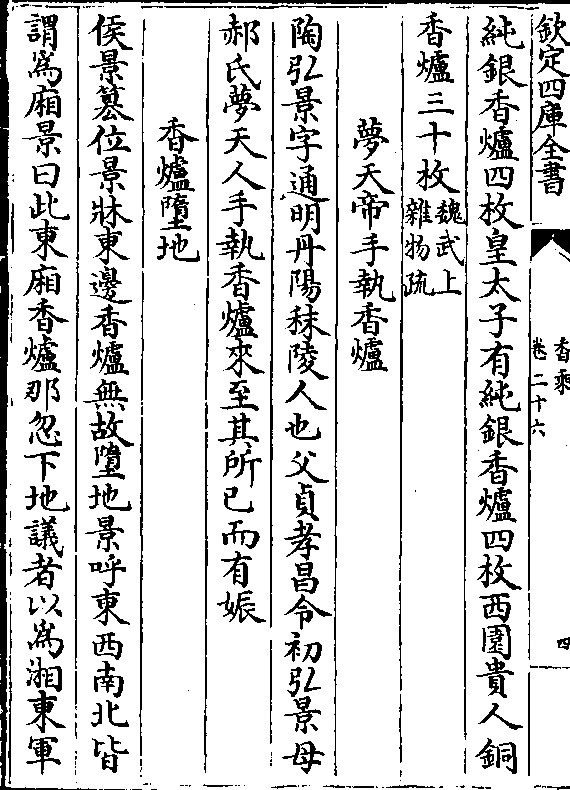 欽定四庫全書
香乘
卷二十六
四
純銀香爐四枚皇太子有純銀香爐四枚西園貴人銅
香爐三十枚魏武上
雜物疏
夢天帝手執香爐
陶弘景字通明丹陽秣陵人也父貞孝昌令初弘景母
郝氏夢天人手執香爐來至其所已而有娠
香爐墮地
侯景簒位景牀東邊香爐無故墮地景呼東西南北皆
謂為廂景曰此東廂香爐那忽下地議者以為湘東軍